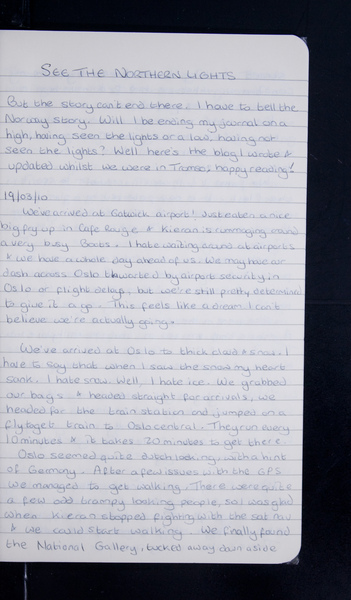 SEE THE NORTHERN LIGHTS
But the story can't end there. I have to tell the
Norway story. Will I be ending my journal on a
high, having seen the lights or a low, having not
seen the lights? Well here's the blog I wrote &
updated whilst we were in Tromso, happy reading!
19/03/10
We've arrived at Gatwick airport! Just eaten a nice
big fry up in Cafe Rouge & Kieran is rummaging around
a very busy Boots. I hate waiting around at airports
& we have a whole day ahead of us. We may have our
dash across Oslo thwarted by airport security in
Oslo or flight delay, but we're still pretty determined
to give it a go. This feels like a dream I can't
believe we're actually going.
We've arrived at Oslo to thick cloud & snow. I
have to say that when I saw the snow my heart
sank. I hate snow. Well, I hate ice. We grabbed
our bags & headed straight for arrivals, we
headed for the train station and jumped on a
flytoget train to Oslo central. They run every
10 minutes & it takes 20 minutes to get there.
Oslo seemed quite dutch looking, with a hint
of Germany. After a few issues with the GPS
we managed to get walking. There were quite
a few odd grumpy looking people, so I was glad
when Kieran stopped fighting with the sat nav
& we could start walking. We finally found
the National Gallery, tucked away down a side